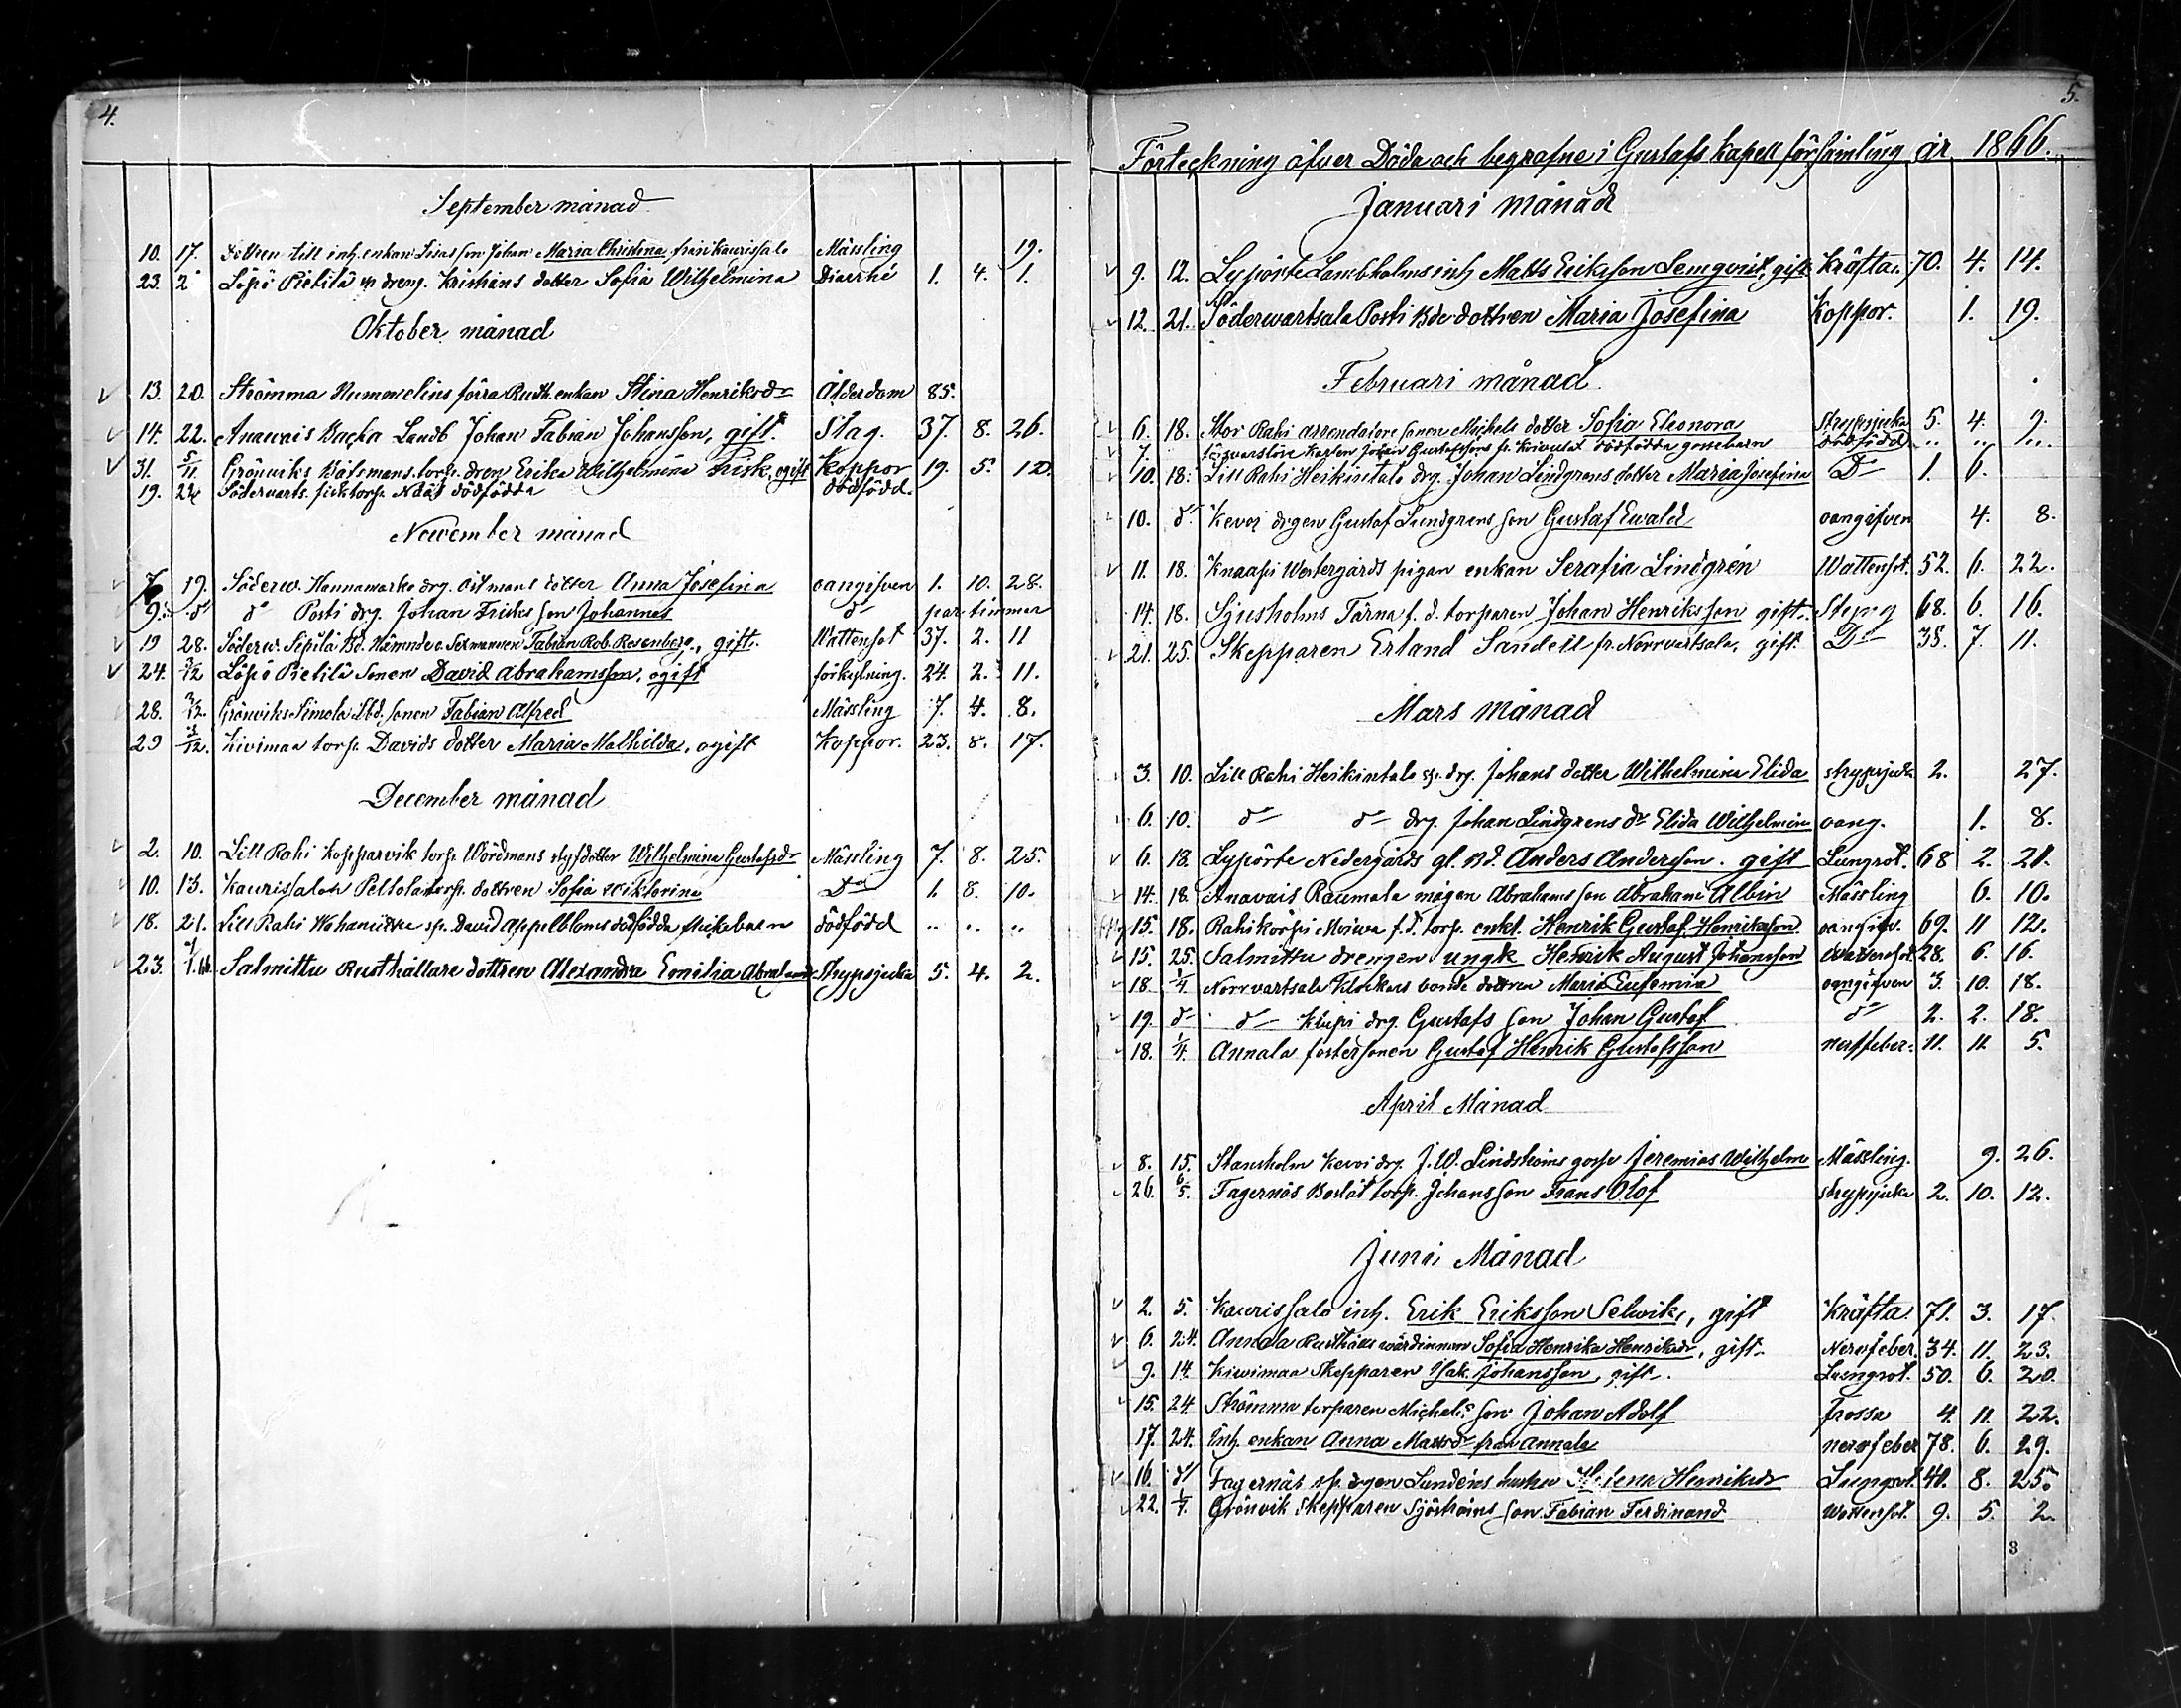 4.
September månad
10. 17. Dottren till inh. enkan Lisas son Johan Maria Christina från Kaurissalo Mässling 19.
23. 2 Löpö Pietilä dreng. Kristians dotter Sofia Wilhelmina Diarrhé 1. 4. 1.
Oktober månad
13. 20. Strömma Nummelins förra Rusth. enkan Stina Henriksdr Ålderdom 85.
14. 22. Anavais Backa Landb Johan Fabian Johansson, gift. Slag. 37. 8. 26.
31. 5/11 Grönviks Båtsmans torp. dren Erika Wilhelmina Frisk, ogift Koppor 19. 5. 12.
19. 24 Södervarts. dödfödda dödfödd.
November månad
7 19. Söderw. Hannamarko drg. Östmans dotter Anna Josefina oangifven 1. 10. 28.
9. do do Posti drg. Johan Frisks son Johannes do par timmar
19 28. Söderw. Sipilä Bd. Nämnde o. Sexmannen Fabian Rob. Rosenberg, gift. Wattensot 37. 2. 11
24. 3/12 Löpö Pietilä Sonen David Abrahamsson, ogift förkylning. 24. 2. 11.
28. 3/12. Grönviks Simola Lbd. sonen Fabian Alfred Mässling 7. 4. 8.
29 3/12. Kivimaa torp. Davids dotter Maria Mathilda, ogift Koppor. 23. 8. 17.
December månad
2. 10. Lill Rahi Kopparvik torp. Wördmans styfdotter Wilhelmina Gustafsdr Mässling 7. 8. 25.
10. 13. Kaurissalo Pellola torp. dottren Sofia Wiktorina Do 1. 8. 10.
18. 21. Lill Rahi sp. David Appelbloms dödfödda flickebarn dödfödd .. .. ..
23. 1/1.66. Salmittu Rusthållare dottren Alexandra Emilia Abrahamsdr Strypsjuka 5. 4. 2.
5.
Förteckning öfver Döda och begrafne i Gustafs Kapell församling år 1866.
Januari månad
9. 12. Lypörtö Lambholms inh Matts Eriksson Lemqvist, gift Kräfta. 70. 4. 14.
12. 21. Söderwartsala Posti Bde dottren Maria Josefina Koppor. 1. 19.
Februari månad.
6. 18. Stor Rahi arrendatore sonen Mickels dotter Sofia Eleonora Strypsjuka 5. 4. 9.
7. Karlen Johan Gustafssons fr. dödfödda gossebarn dödfödd .. .. ..
10. 18. Lill Rahi Heikintalo drg. Johan Lindgrens dotter Maria Josefina Do 1. 6.
10. do. Kevoi drgen Gustaf Lundgrens son Gustaf Ewald oangifven 4. 8.
11. 18. Knaapi Westergårds pigan enkan Serafia Lindgrén Wattensot. 52. 6. 22.
14. 18. Sjusholms Tärna f. d. torparen Johan Henriksson gift. Styng 68. 6. 16.
21. 25. Skepparen Erland Sandell fr. Norrvartsala, gift. Do 38. 7. 11.
Mars Månad
3. 10. Lill Rahi Heikintalo sp. drg. Johans dotter Wilhelmina Elida strypsjuka 2. 27.
6. 10. do do drg. Johan Lindgrens dr Elida Wilhelmin oang. 1. 8.
6. 18. Lypörtö Nedergårds gl. Bd. Anders Andersson. gift Lungsot. 68 2. 21.
14. 18. Anavais Raumala mågen Abrahams son Abraham Albin Mässling 6. 10.
15. 18. Rahikorpi f.d. torp. enkl. Henrik Gustaf Henriksson oangifv. 69. 11 12.
15. 25. Salmittu drengen ungk Henrik August Johansson Wattensot. 28. 6. 16.
18. 1/4. Norrvartsala Klockars bonde dottren Maria Eufemia oangifven 3. 10. 18.
19. do do Kuppi drg. Gustafs son Johan Gustaf do 2. 2. 18.
18. 1/4. Annala fostersonen Gustaf Henrik Gustafsson nerffeber. 11. 11. 5.
April Månad
8. 15. Stansholm Kevoi drg. J. W. Lindströms gosse Jeremias Wilhelm Mässling. 9. 26.
26. 6/5. Fagernäs torp. Johans son Frans Olof strypsjuka 2. 10. 12.
Juni Månad
2. 5. Kaurissalo inh. Erik Eriksson Selvik, gift Kräfta 71. 3. 17.
6. 24. Annala Rusthålls wärdinnan Sofia Henrika Henriksdr, gift Nervfeber. 34. 11. 23.
9. 14. Kivimaa Skepparen Isak Johansson, gift. Lungsot. 50. 6. 20.
15. 24 Strömma torparen Michels son Johan Adolf frossa 4. 11. 22.
17. 24. Inh. enkan Anna Mattsdr från Annala nervfeber 78. 6. 29.
16. do Fagernäs sp. drgen Lundéns hustru Helena Henriksdr Lungsot. 40. 8. 25.
22. 1/7. Grönvik Skepparen Sjöströms son Fabian Ferdinand Wattensot. 9. 5. 2.
3